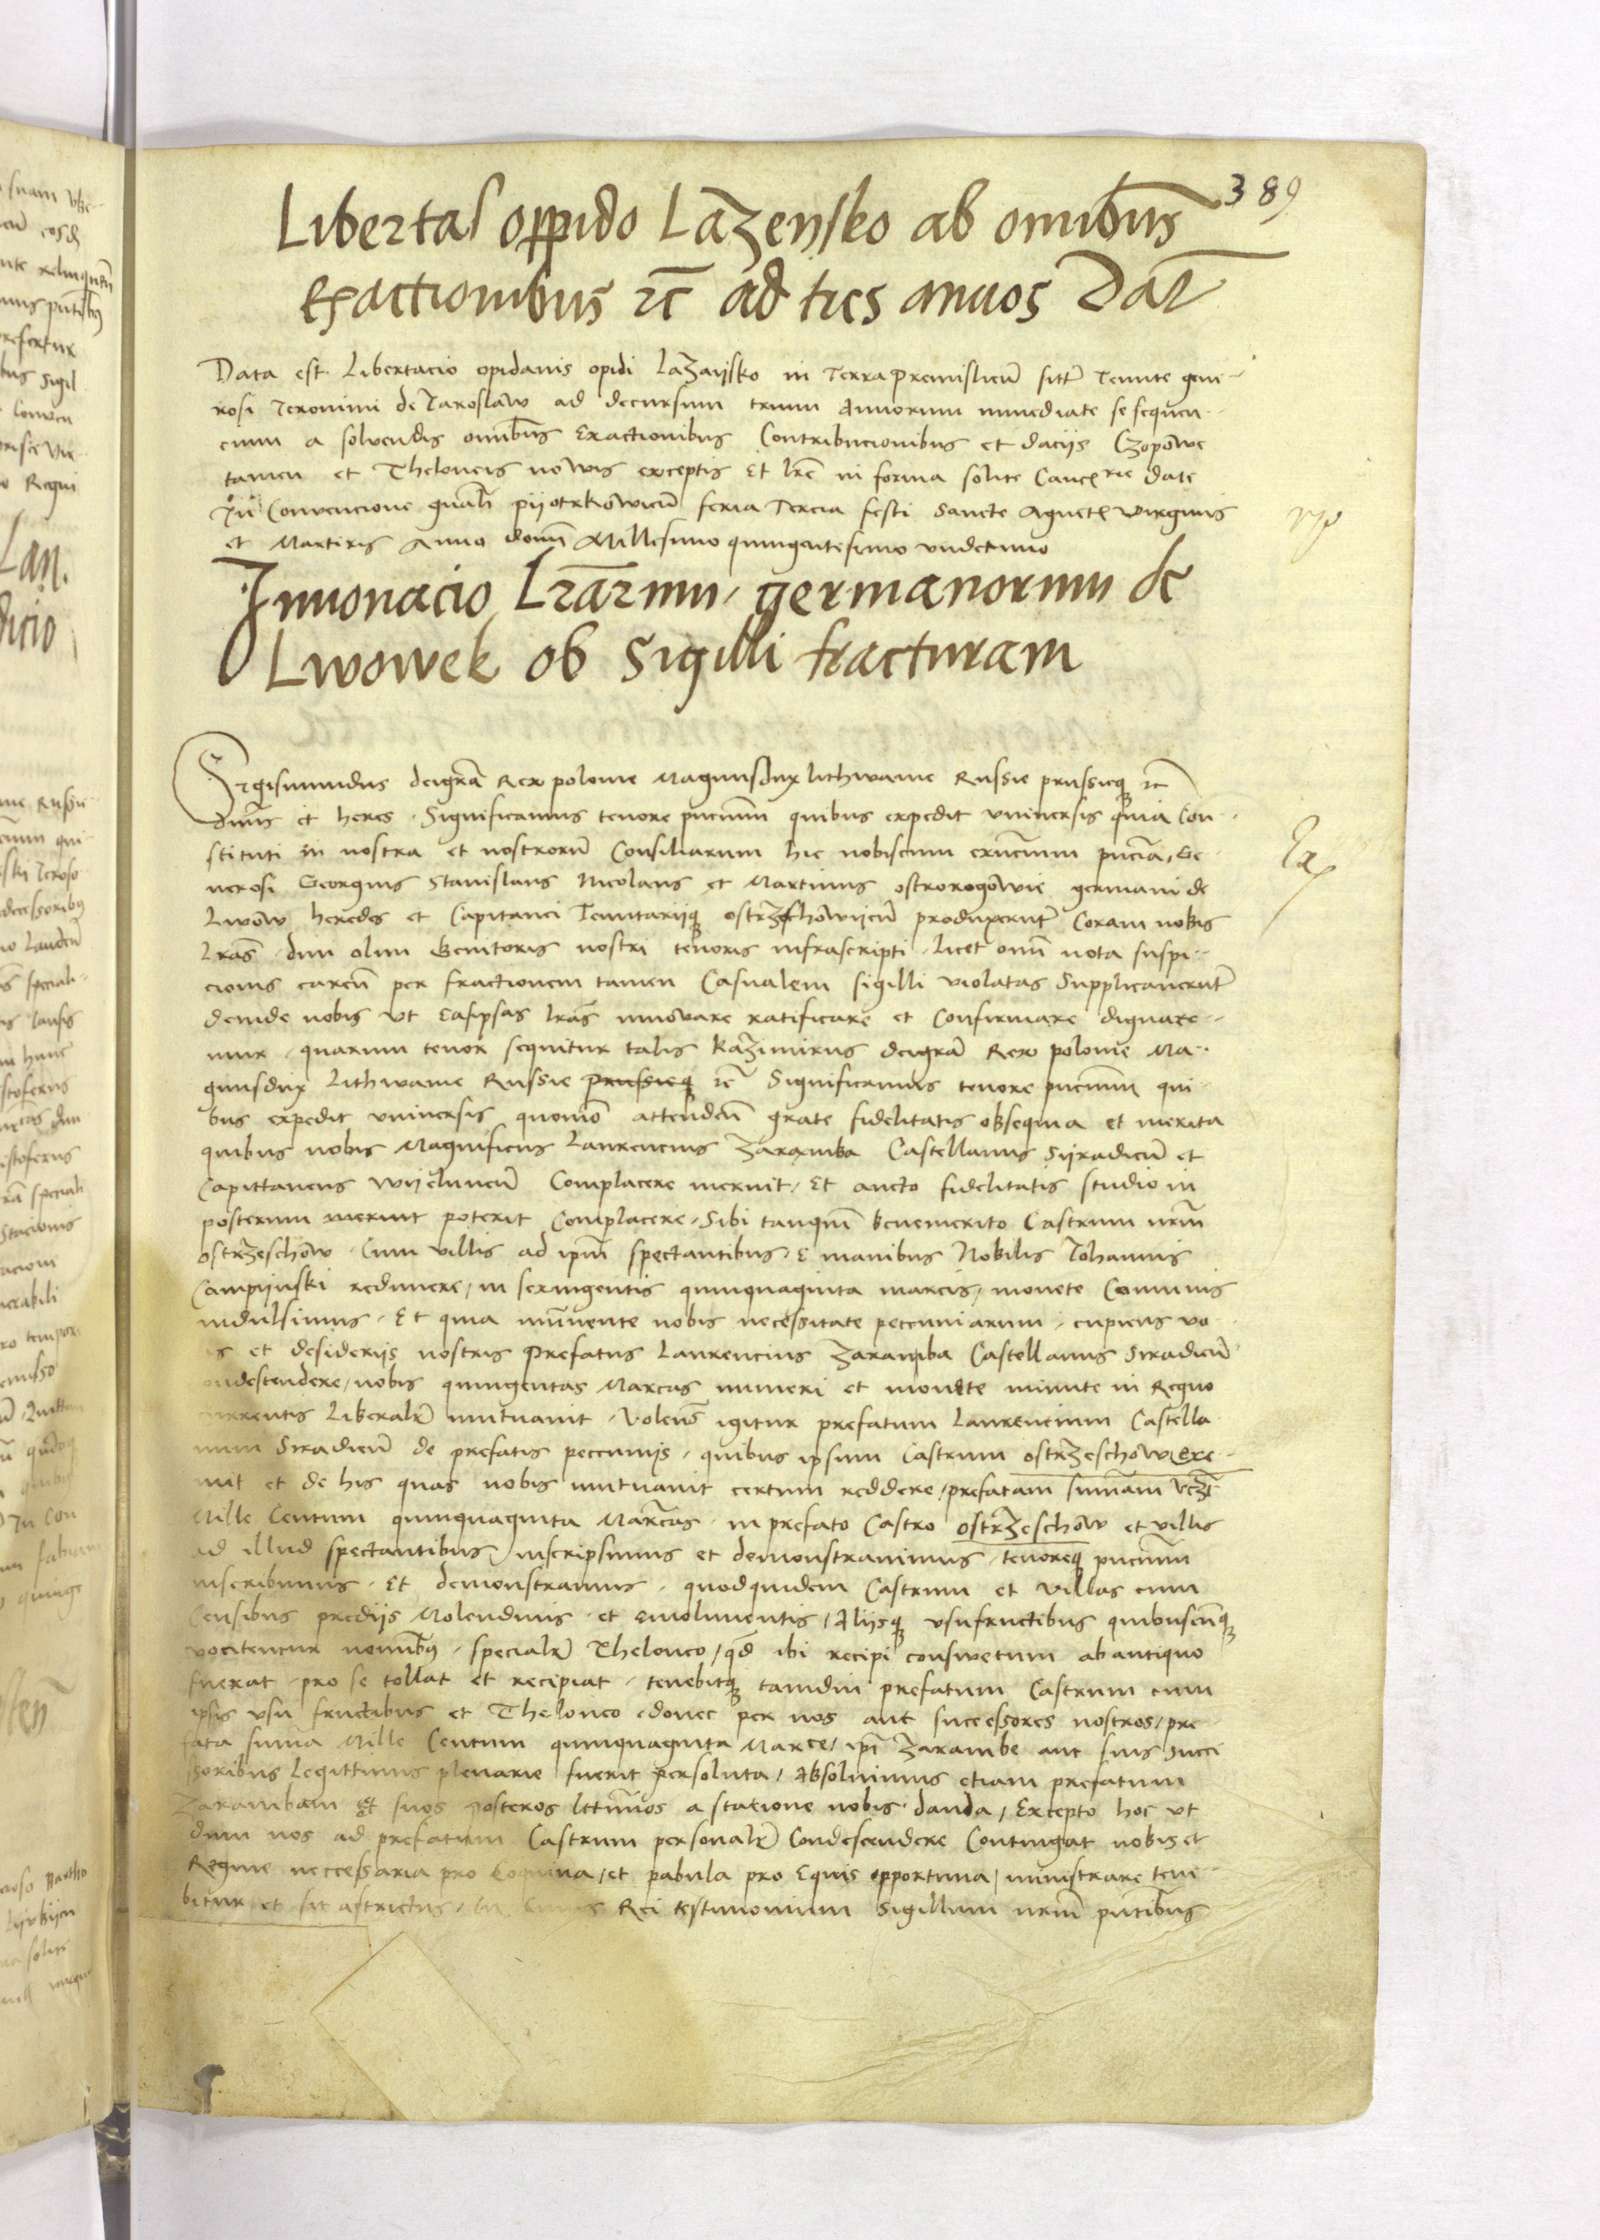 389
Libertas oppido Lazensko ab omībus
exactionibus etc̄ ad tres annos Dat̄
Data est Libertacio opidanis opidi Lazaijsko in Terra premislien̄ sitt̄ Tenute gene-
rosi Jeronimi de Jaroslaw ad decursum trium Annorum immediate se sequen-
cium a solvendis omībus Exactionibus Contribucionibus et dacijs Czopowe
tamen et Theloneis nowis exceptis Et lr̄e in forma solite Canc̄rie date
In Convencione gnāli pijotrkowien̄ feria Tercia festi Sancte Agnet̄ virginis
et Martiris Anno domī Millesimo quingentesimo undecimo
Innouacio Lrārum germanorum de
Lwowek ob sigilli fracturam
Sigismundus dei grā Rex polonie Magnus dux lithwanie Russie prussieq̄ etc̄
dnūs et heres Significamus tenore pn̄cium quibus expedit universis quia Con-
stituti in nostra et nostrorū Consiliarum hic nobiscum exn̄cium pn̄cia, Ge-
nerosi Georgius Stanislaus Nicolaus et Martinus ostrorogowie germani de
Lwow heredes et Capitanei Tenutarijq̄ ostrzeschowijen̄ produxerunt̄ Coram nobis
Lrās dnī olim Genitoris nostri tenoris infrascripti licet omī nota suspi-
cionis caren̄ per fractionem tamen Casualem sigilli violatas Supplicaverunt̄
deinde nobis ut Easipsas lrās innovare ratificare et Confirmare dignare-
mur quarum tenor sequitur talis Kazimirus dei grā Rex polonie Ma-
gnusdux Lithwanie Russie prussieq̄ etc̄ Significamus tenore pn̄cium qui-
bus expedit universis quomō attenden̄ grate fidelitatis obsequia et merita
quibus nobis Magnificus laurencius Zaramba Castellanus Sijradien̄ et
Capittaneus wijelunen̄ Complacere meruit, Et aucto fidelitatis studio in
posterum meruit poterit Complacere, Sibi tanquā benemerito Castrum nrm̄
ostrzeschow Cum villis ad ipm̄ spectantibus e manibus Nobilis Johannis
Campijnski redimere, in sexingentis quinquaginta marcis, monete Communis
indulsimus Et quia imminente nobis necessitate pecuniarum, cupiens vo-
is et desiderijs nostris Prefatus Laurencius Zaramba Castellanus Siradien̄
ondescendere, nobis quingentas Marcas numeri et monete minute in Regno
currentis Liberalr̄ mutuavit Volen̄s igitur prefatum Laurencium Castella-
num Siradien̄ de prefatis peccunijs, quibus ipsum Castrum ostrzeschow exe-
mit et de his quas nobis mutuavit certum reddere, prefatam summam vczt̄
Mille Centum quinquaginta Marcas in prefato Castro ostrzeschow et villis
ad illud spectantibus inscripsimus et demonstravimus, tenoreq̄ pn̄cium
inscribimus Et demonstramus, quodquidem Castrum et villas cum
Censibus predijs Molendinis et emolumentis, Alijsq̄ usufructibus quibuscunq̄
vocitentur nominibus, specialr̄ Theloneo, qd̄ ibi recipi conswetum ab antiquo
fuerat pro se tollat et recipiat, tenebitq̄ tamdiu prefatum Castrum cum
ipsis usu fructibus et Theloneo donec per nos aut successores nostros, pre-
fata suma Mille Centum quinquaginta Marce, ipī Zarambe aut suis Succe
ssoribus Legittimis plenarie fuerit persoluta, Absolvimus etiam prefatum
Zarambam et suos posteros lttimos a stacione nobis danda, Excepto hoc ut
dum nos ad prefatum Castrum personalr̄ Condescendere Contingat nobis et
Regine neccessaria pro Coquina, et pabula pro Equis opportuna, ministrare tene-
bitur et sit astrictus, In Cuius Rei testimonium Sigillum nrm̄ pn̄tibus